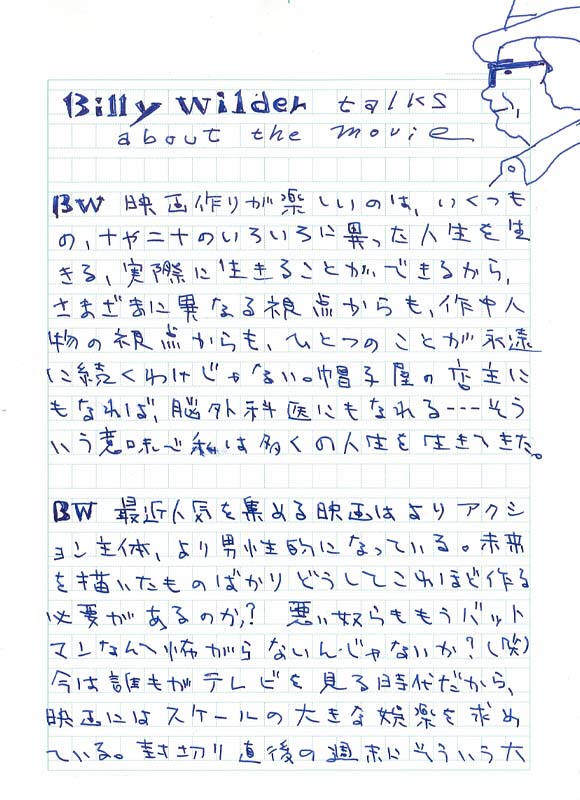 Billy Wilder talks
about the movie
BW 映画作りが楽しいのは、いくつも
の、十や二十のいろいろに異った人生を生
きる、実際に生きることができるから、
さまざまに異なる視点からも、作中人
物の視点からも、ひとつのことが永遠
に続くわけじゃない。帽子屋の店主に
もなれば、脳外科医にもなれる---そう
いう意味で私は多くの人生を生きてきた。
BW 最近人気を集める映画はよりアクシ
ョン主体、より男性的になっている。未来
を描いたものばかりどうしてこれほど作る
必要があるのか? 悪い奴らももうバット
マンなんへ怖がらないんじゃないか?(笑)
今は誰もがテレビを見る時代だから、
映画にはスケールの大きな娯楽を求め
ている。封切り直後の週末にそういう大